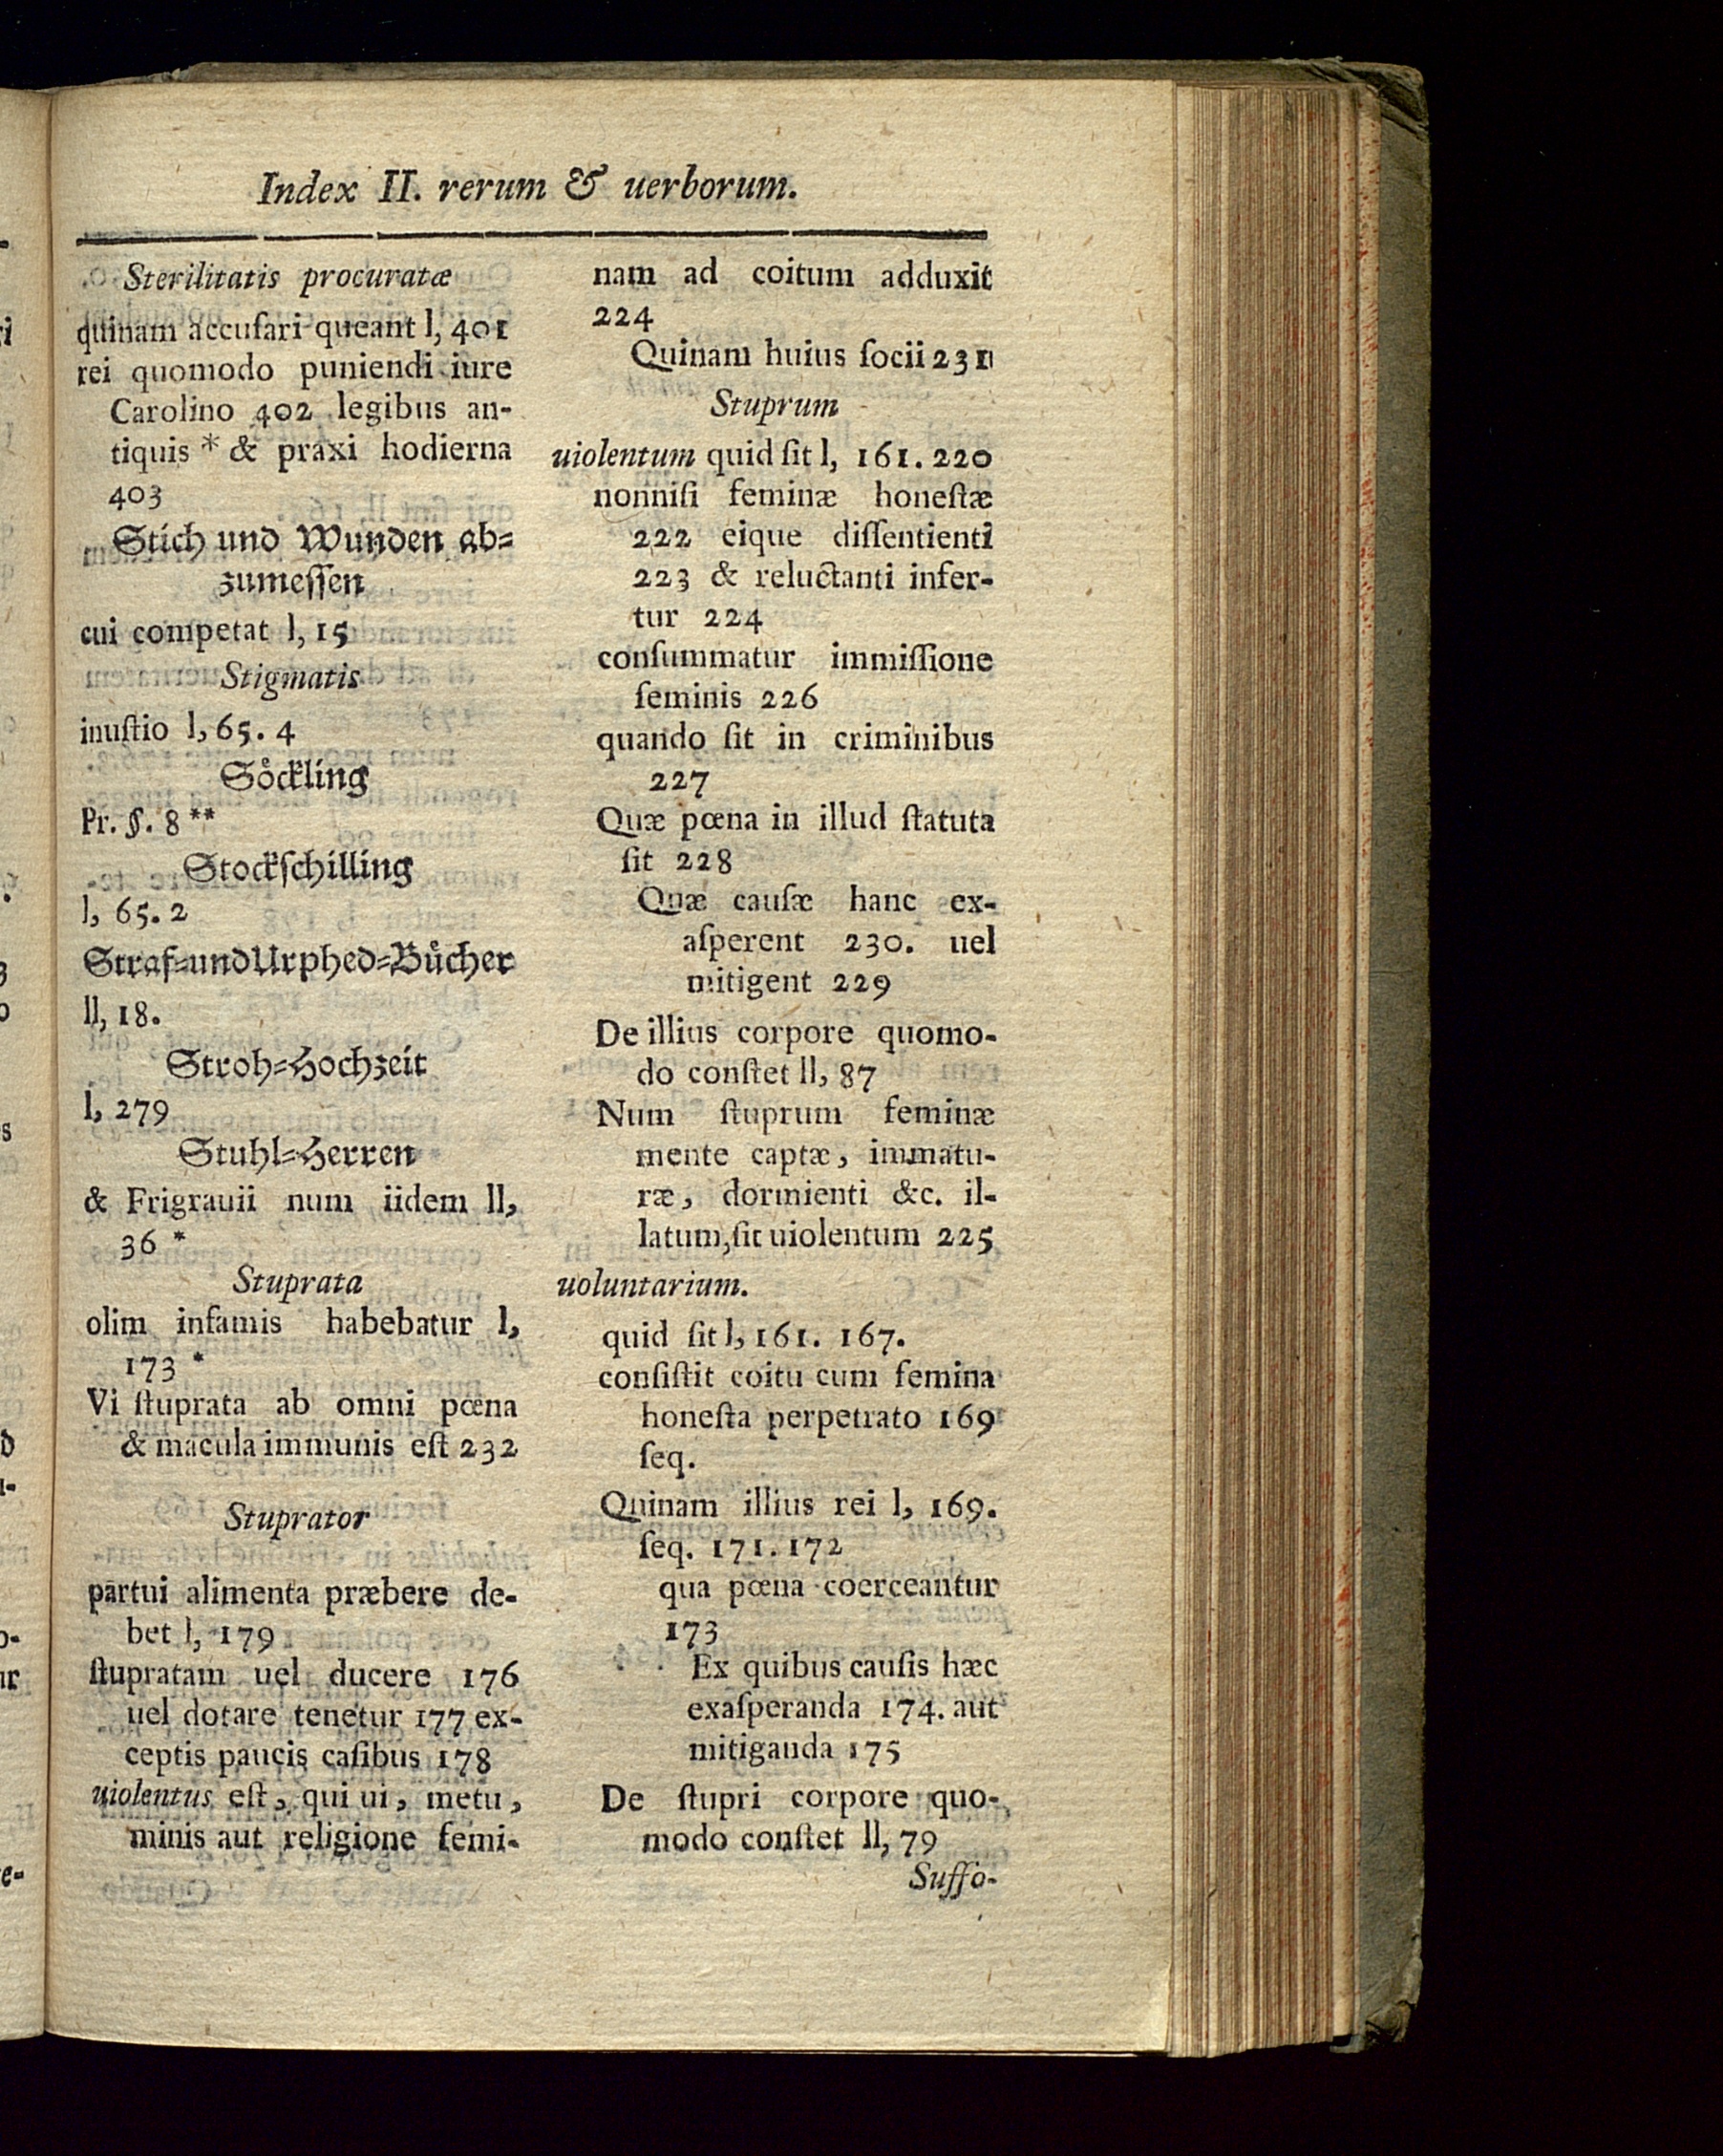 Index II. rerum & uerborum.
Sterilitatis procuratæ
quinam accuſari queant l, 401
rei quomodo puniendi iure
Carolino 402 legibus an-
tiquis * & praxi hodierna
403
Stich und Wunden ab-
zumeſſen
cui competat l, 15
Stigmatis
inuſtio l, 65. 4
Söckling
Pr. §. 8 **
Stockſchilling
l, 65. 2
Straf-und Urphed-Bücher
ll, 18.
Stroh-Hochzeit
l, 279
Stuhl-Herren
& Frigrauii num iidem ll,
36 *
Stuprata
olim infamis habebatur l,
173 *
Vi ſtuprata ab omni pœna
& macula immunis eſt 232
Stuprator
partui alimenta præbere de-
bet l, 179
ſtupratam uel ducere 176
uel dotare tenetur 177 ex-
ceptis paucis caſibus 178
uiolentus eſt, qui ui, metu,
minis aut religione femi-
nam ad coitum adduxit
224
Quinam huius ſocii 231
Stuprum
uiolentum quid ſit l, 161. 220
nonniſi feminæ honeſtæ
222 eique diſſentienti
223 & reluctanti infer-
tur 224
conſummatur immiſſione
ſeminis 226
quando ſit in criminibus
227
Quæ pœna in illud ſtatuta
ſit 228
Quæ cauſæ hanc ex-
aſperent 230. uel
mitigent 229
De illius corpore quomo-
do conſtet ll, 87
Num ſtuprum feminæ
mente captæ, immatu-
ræ, dormienti &c. il-
latum, ſit uiolentum 225
uoluntarium.
quid ſit l, 161. 167.
conſiſtit coitu cum femina
honeſta perpetrato 169
ſeq.
Quinam illius rei l, 169.
ſeq. 171. 172
qua pœna coerceantur
173
Ex quibus cauſis hæc
exaſperanda 174. aut
mitiganda 175
De ſtupri corpore quo-
modo conſtet ll, 79
Suffo-